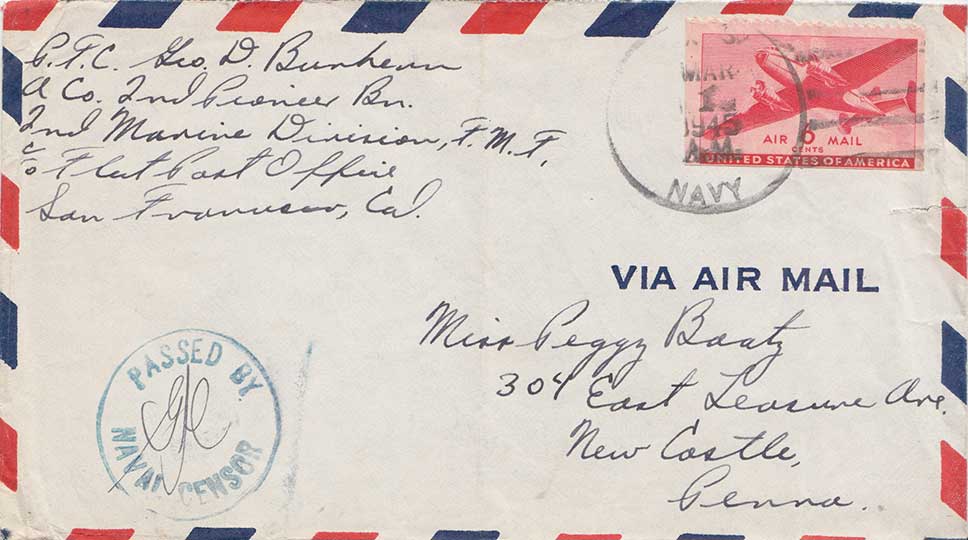 P.F.C. Geo. D. Burhenn
A Co. 2nd Pioneer Bn.
2nd Marine Division, F.M.F.
c/o Fleet Post Office
San Francisco, Cal.
MAR
1
1945
A.M.
NAVY
AIR 6 MAIL
CENTS
UNITED STATES OF AMERICA
VIA AIR MAIL
Miss Peggy Baatz
304 East Leasure Ave.
New Castle,
Penna.
PASSED BY
NAVAL CENSOR